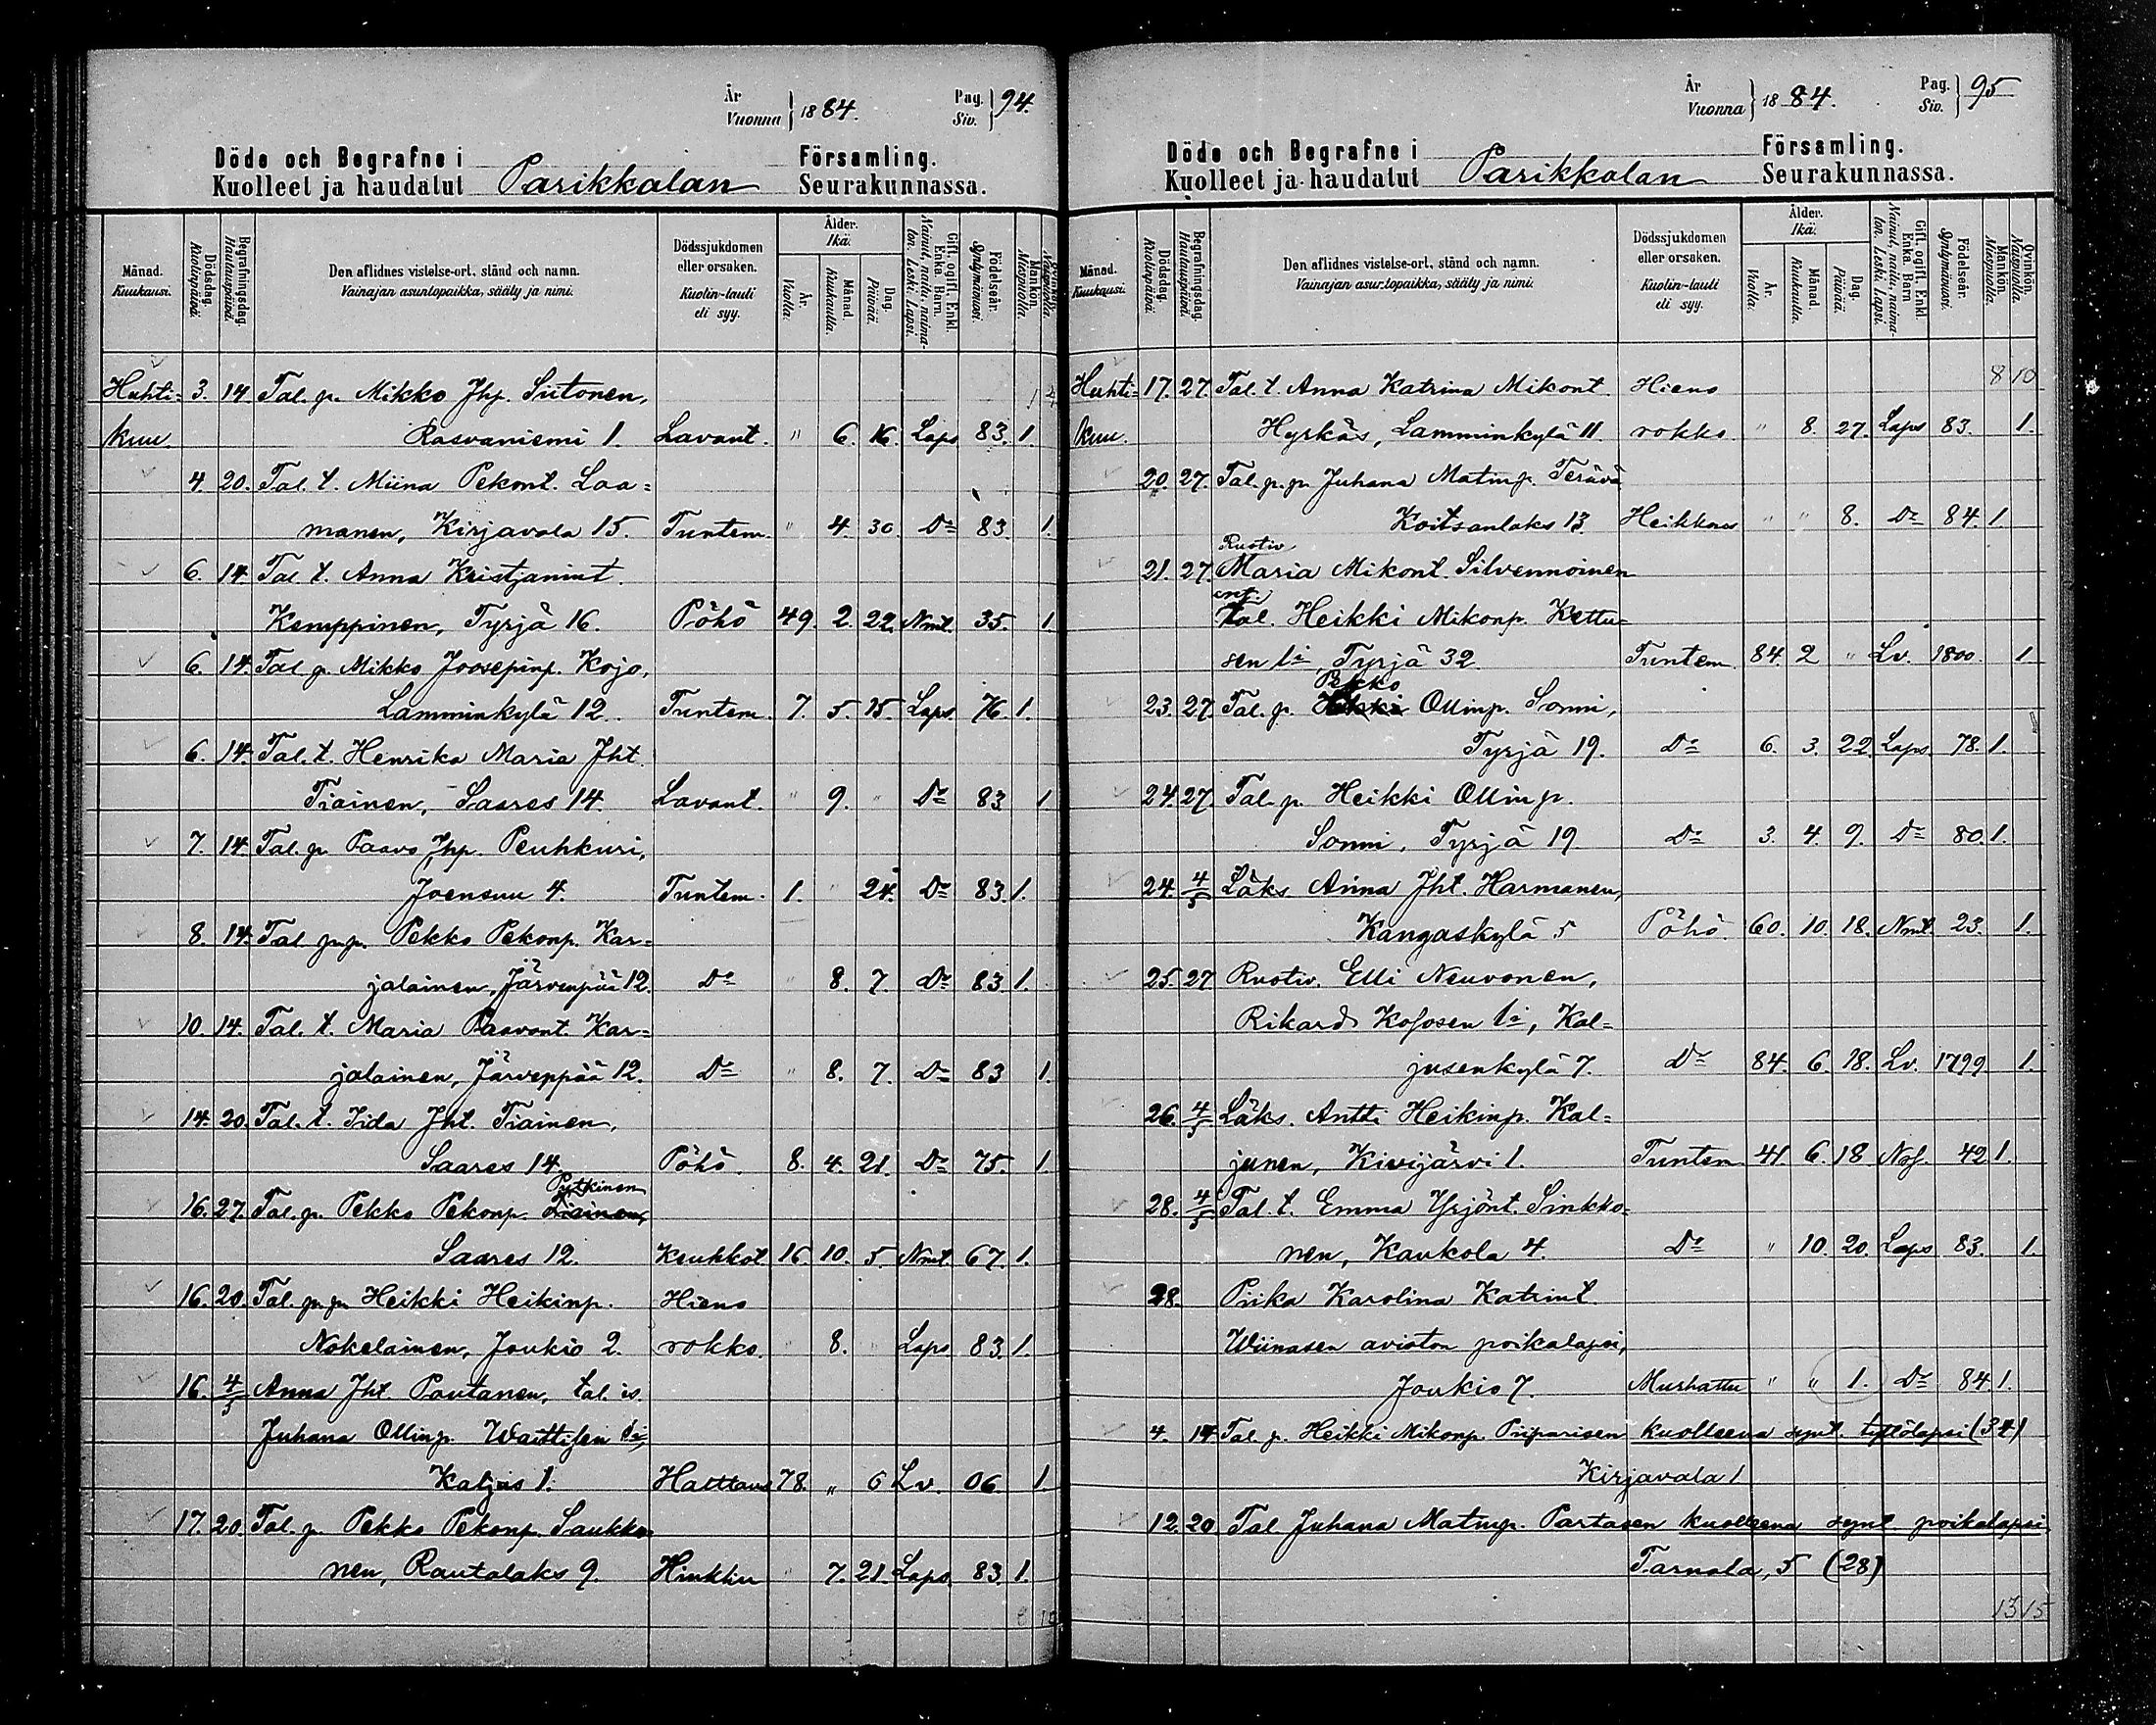 År Vuonna } 1884. Pag. Siv. } 94.
Döde och Begrafne i Församling.
Kuolleet ja haudatut Parikkalan Seurakunnassa.
Månad. Kuukausi. Dödsdag. Kuolinpäivä. Begrafningsdag. Hautauspäivä. Den aflidnes vistelse-ort, stånd och namn. Vainajan asuntopaikka, sääty ja nimi. Dödssjukdomen eller orsaken. Kuolin-tauti eli syy. Ålder. Ikä. År. Vuotta. Månad. Kuukautta. Dag. Päivää. Gift, ogift, Enkl. Enka, Barn. Nainut, naitu, naima-ton, Leski, Lapsi. Födelseår. Syntymävuosi. Mankön. Miespuolia. Qvinkön. Naispuolia.
Huhti= 3. 14 Tal. p. Mikko Jhp. Siitonen,
kuu Rasvaniemi 1. Lavant. " 6. 16. Laps 83. 1.
4. 20. Tal. t. Miina Pekont. Laa=
manen, Kirjavala 15. Tuntem. " 4. 30. Do 83. 1.
6. 14 Tal. t. Anna Kristjanint.
Kemppinen, Tyrjä 16. Pöhö 49. 2. 22. Nmt. 35. 1.
6. 14. Tal p. Mikko Joosepinp. Kojo,
Lamminkylä 12. Tuntem. 7. 5. 15. Laps. 76. 1.
6. 14. Tal. t. Henrika Maria Jht.
Tiainen, Saares 14. Lavant. " 9. " Do 83 1
7. 14. Tal. p. Paavo Jhp. Peuhkuri,
Joensuu 4. Tuntem. 1. " 24. Do 83. 1.
8. 14. Tal p.p. Pekko Pekonp. Kar=
jalainen, Järvenpää 12. Do " 8. 7. Do 83. 1.
10. 14. Tal. t. Maria Paavont. Kar=
jalainen, Järveppää 12. Do " 8. 7. Do 83 1.
14. 20. Tal. t. Iida Jht. Tiainen,
Saares 14. Pöhö. 8. 4. 21. Do 75. 1.
Pytkinen
16. 27. Tal. p. Pekko Pekonp. Tiainen,
Saares 12. Keuhkot. 16. 10. 5. Nmt. 67. 1.
16. 20. Tal. p.p. Heikki Heikinp. Hieno
Nokelainen, Joukio 2. rokko. " 8. " Laps 83. 1.
16. 4/5 Anna Jht. Pautanen, tal. is.
Juhana Ollinp. Waittisen li,
Kaljus 1. Halttaus 78. " 6 Lv. 06 1.
17. 20. Tal. p. Pekko Pekonp. Saukko=
nen, Rautalaks 9. Hinkhu " 7. 21. Laps. 83. 1.
8 10
År Vuonna } 1884. Pag. Siv. } 95
Döde och Begrafne i Församling.
Kuolleet ja haudatut Parikkalan Seurakunnassa.
Månad. Kuukausi. Dödsdag. Kuolinpäivä. Begrafningsdag. Hautauspäivä. Den aflidnes vistelse-ort, stånd och namn. Vainajan asuntopaikka, sääty ja nimi. Dödssjukdomen eller orsaken. Kuolin-tauti eli syy. Ålder. Ikä. År. Vuotta. Månad. Kuukautta. Dag. Päivää. Gift, ogift, Enkl. Enka, Barn Nainut, naitu, naima-ton, Leski, Lapsi. Födelseår. Syntymävuosi. Mankön. Miespuolia. Qvinkön. Naispuolia.
8 10
Huhti= 17. 27. Tal. t. Anna Katrina Mikont. Hieno
kuu. Hyrkäs, Lamminkylä 11. rokko. " 8. 27. Laps 83. 1.
20. 27. Tal. p.p. Juhana Matinp. Terävä
Koitsanlaks 13. Heikkous " " 8. Do 84. 1.
Ruotiv.
21. 27. Maria Mikont. Silvennoinen
ent.
Tal. Heikki Mikonp. Kettu=
sen li, Tyrjä 32 Tuntem. 84. 2 " Lv. 1800. 1
Pekko
23. 27. Tal. p. Heikki Ollinp. Sonni,
Tyrjä 19. Do 6. 3. 22. Laps 78. 1.
24. 27. Tal. p. Heikki Ollinp.
Sonni, Tyrjä 19 Do 3. 4. 9. Do 80. 1.
24. 4/5 Läks. Anna Jht. Harmanen,
Kangaskylä 5 Pöhö. 60. 10. 18. Nmt. 23. 1.
25. 27 Ruotiv. Elli Neuvonen,
Rikard Kososen li, Kal=
jusenkylä 7. Do 84. 6. 18. Lv. 1799 1.
26. 4/5 Läks. Antti Heikinp. Kal=
junen, Kivijärvi 1. Tuntem 41. 6. 18 42 1.
28. 4/5 Tal. t. Emma Yrjönt. Sinkko=
nen, Kaukola 4. Do " 10. 20. Laps 83. 1.
28. Piika Karolina Katrint.
Wiinasen avioton poikalapsi,
Joukio 7. Murhattu " " 1. Do 84 1.
4. 14 Tal. p. Heikki Mikonp. Piiparisen kuolleena synt. tyttölapsi (34)
Kirjavala 1
12. 20 Tal Juhana Matinp. Partasen kuolleena synt. poikalapsi.
Tarnala, 5 (28)
13 15